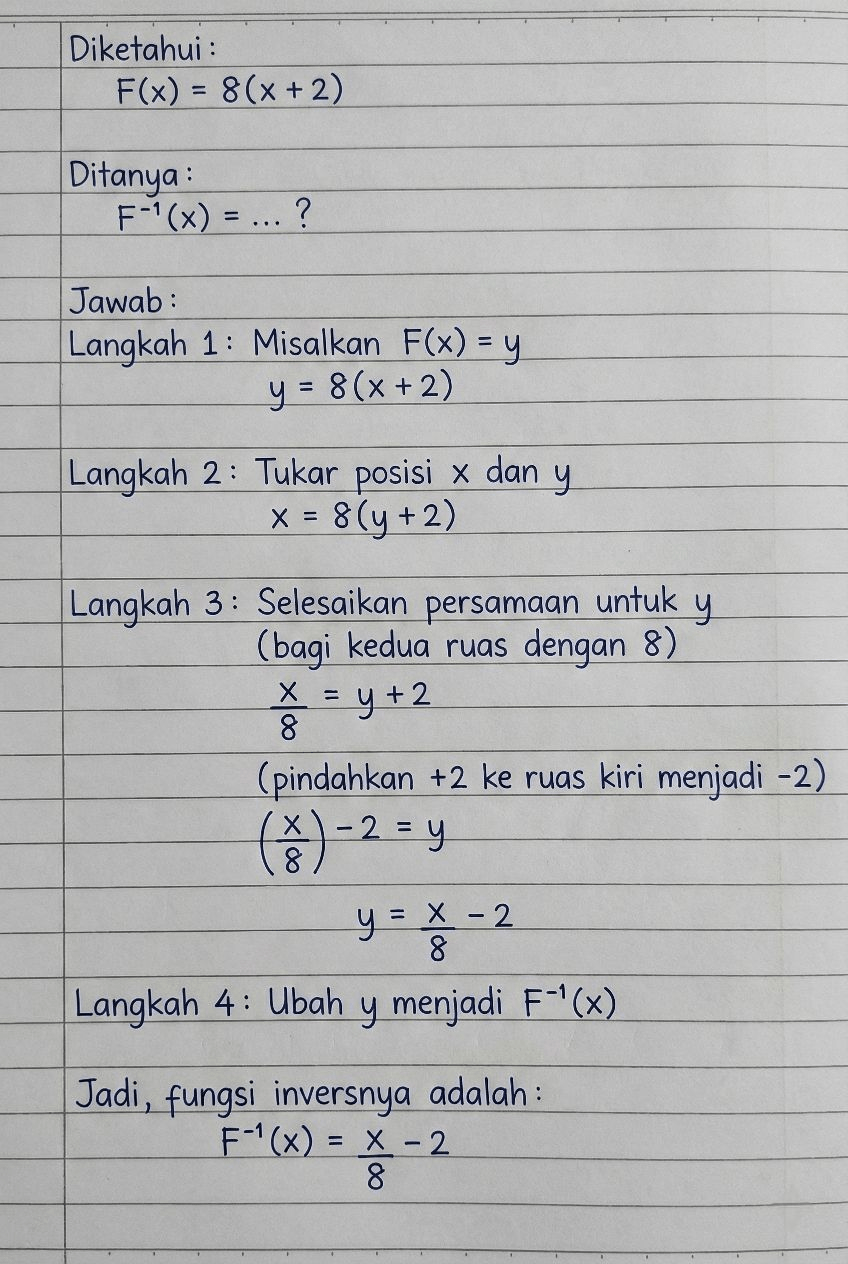 Diketahui :
F(x) = 8(x + 2)
Ditanya :
F⁻¹(x) = ... ?
Jawab :
Langkah 1 : Misalkan F(x) = y
y = 8(x + 2)
Langkah 2 : Tukar posisi x dan y
x = 8(y + 2)
Langkah 3 : Selesaikan persamaan untuk y
(bagi kedua ruas dengan 8)
x/8 = y + 2
(pindahkan +2 ke ruas kiri menjadi -2)
(x/8) - 2 = y
y = x/8 - 2
Langkah 4 : Ubah y menjadi F⁻¹(x)
Jadi, fungsi inversnya adalah :
F⁻¹(x) = x/8 - 2